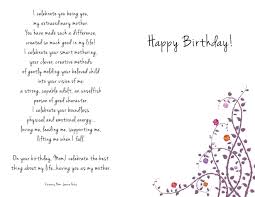 I celebrate you being you,
my extraordinary mother.
You have made such a difference,
created so much good in my life!
I celebrate your smart mothering,
your clever, creative methods
of gently molding your beloved child
into your vision of me:
a strong, capable adult, an unselfish
person of good character.
I celebrate your boundless
physical and emotional energy...
loving me, leading me, supporting me,
lifting me when I fall.
On your birthday, Mom, I celebrate the best
thing about my life...having you as my mother.
Happy Birthday!